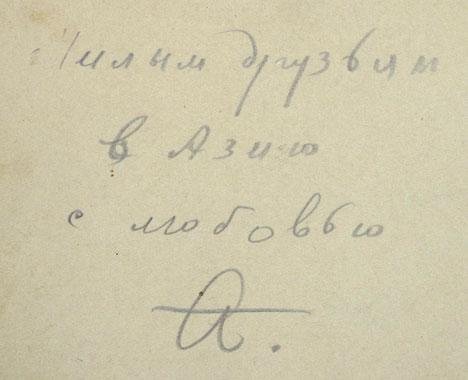 Милым друзьям
в Азию
с любовью
А.